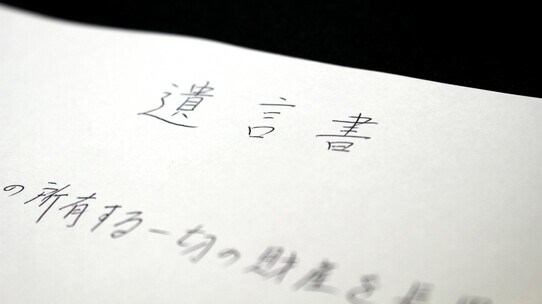 遺言書
の所有する一切の財産を長